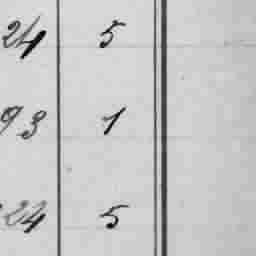 24 5
93 1
24 5